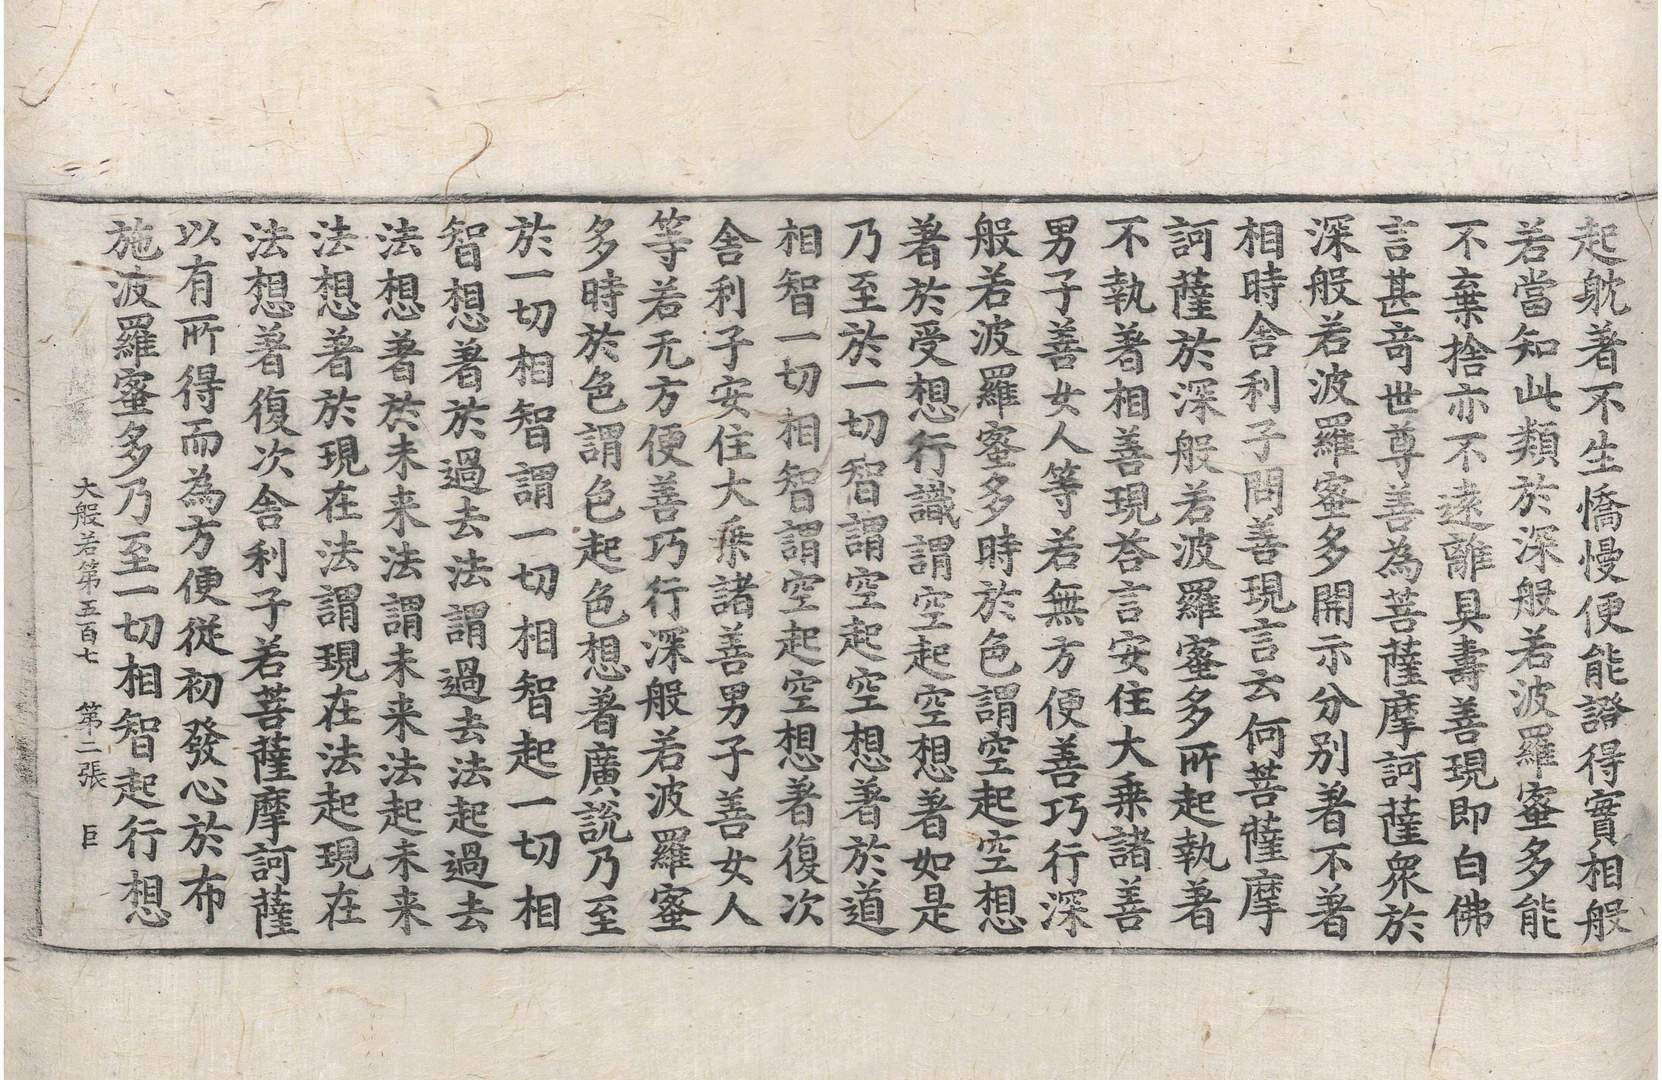 起躭著不生憍慢便能證得實相般
若當知此類於深般若波羅蜜多能
不棄捨亦不遠離具壽善現即白佛
言甚竒世尊善為菩薩摩訶薩衆於
深般若波羅蜜多開示分別著不著
相時舍利子問善現言云何菩薩摩
訶薩於深般若波羅蜜多所起執著
不執著相善現荅言安住大乗諸善
男子善女人等若無方便善巧行深
般若波羅蜜多時於色謂空起空想
著於受想行識謂空起空想著如是
乃至於一切智謂空起空想著於道
相智一切相智謂空起空想著復次
舍利子安住大乗諸善男子善女人
等若无方便善巧行深般若波羅蜜
多時於色謂色起色想著廣說乃至
於一切相智謂一切相智起一切相
智想著於過去法謂過去法起過去
法想著於未来法謂未来法起未来
法想著於現在法謂現在法起現在
法想著復次舍利子若菩薩摩訶薩
以有所得而為方便從初發心於布
施波羅蜜多乃至一切相智起行想
大般若第五百七　第二張　巨